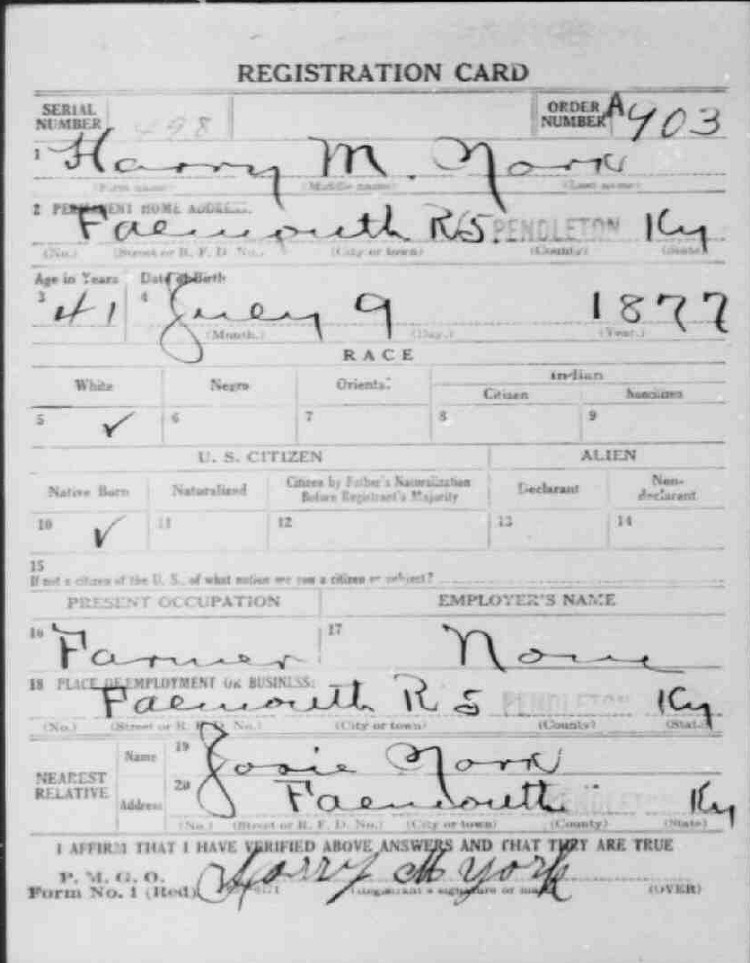 REGISTRATION CARD
SERIAL NUMBER 498 ORDER NUMBER A903
1 Harry M. York
(First name) (Middle name) (Last name)
2 PERMANENT HOME ADDRESS:
Falmouth R5. PENDLETON Ky
(No.) (Street or R. F. D. No.) (City or town) (County) (State)
Age in Years Date of Birth
3 41 4 July 9 1877
(Month.) (Day.) (Year.)
RACE
White Negro Oriental Indian
Citizen Noncitizen
5 ✓ 6 7 8 9
U. S. CITIZEN ALIEN
Native Born Naturalized Citizen by Father's Naturalization Before Registrant's Majority Declarant Non-declarant
10 ✓ 11 12 13 14
15
If not a citizen of the U. S., of what nation are you a citizen or subject?
PRESENT OCCUPATION EMPLOYER'S NAME
16 Farmer 17 None
18 PLACE OF EMPLOYMENT OR BUSINESS:
Falmouth R 5 PENDLETON Ky
(No.) (Street or R. F. D. No.) (City or town) (County) (State)
NEAREST RELATIVE Name 19 Josie York
Address 20 Falmouth PENDLETON Ky
(No.) (Street or R. F. D. No.) (City or town) (County) (State)
I AFFIRM THAT I HAVE VERIFIED ABOVE ANSWERS AND THAT THEY ARE TRUE
P. M. G. O.
Form No. 1 (Red) Harry M York (OVER)
(Registrant's signature or mark)